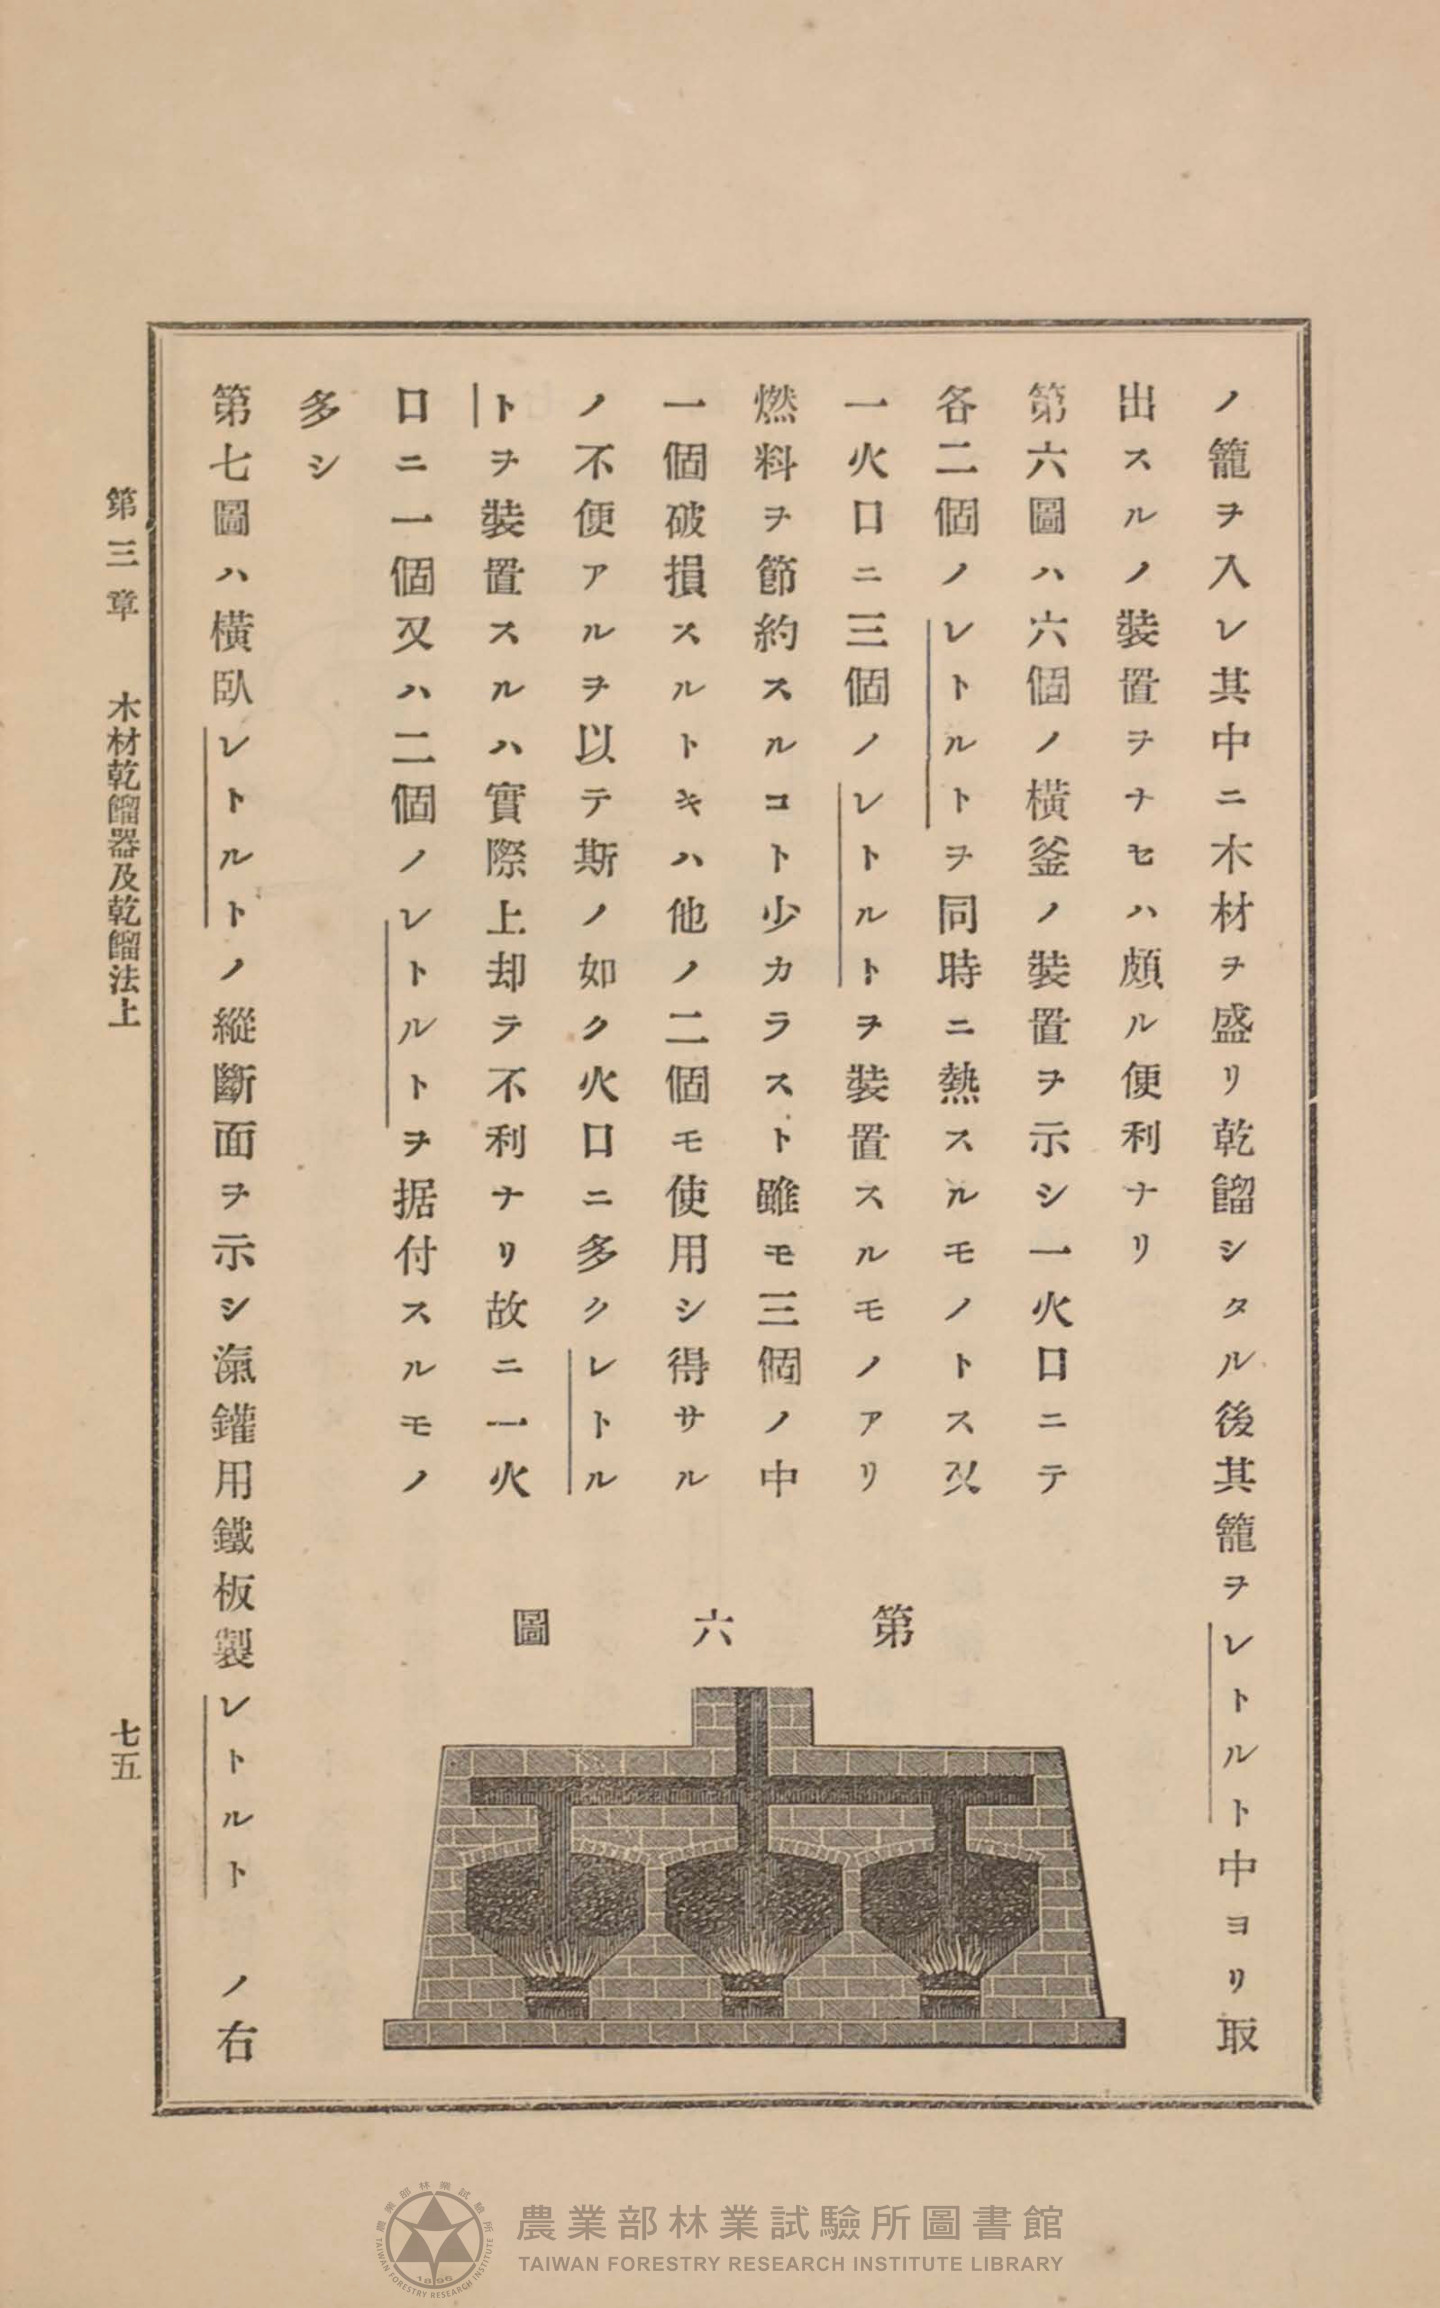 ノ籠ヲ入レ其中ニ木材ヲ盛リ乾餾シタル後其籠ヲレトルト中ヨリ取
出スルノ裝置ヲナセハ頗ル便利ナリ
第六圖ハ六個ノ橫釜ノ裝置ヲ示シ一火口ニテ
各二個ノレトルトヲ同時ニ熱スルモノトス又
一火口ニ三個ノレトルトヲ裝置スルモノアリ
燃料ヲ節約スルコト少カラスト雖モ三個ノ中
一個破損スルトキハ他ノ二個モ使用シ得サル
ノ不便アルヲ以テ斯ノ如ク火口ニ多クレトル
トヲ裝置スルハ實際上却テ不利ナリ故ニ一火
口ニ一個又ハ二個ノレトルトヲ据付スルモノ
多シ
第六圖
第七圖ハ橫臥レトルトノ縱斷面ヲ示シ滊鑵用鐵板製レトルト ノ右
第三章 木材乾餾器及乾餾法上
七五
農業部林業試驗所圖書館
TAIWAN FORESTRY RESEARCH INSTITUTE LIBRARY
農業部林業試驗所
TAIWAN FORESTRY RESEARCH INSTITUTE
1896